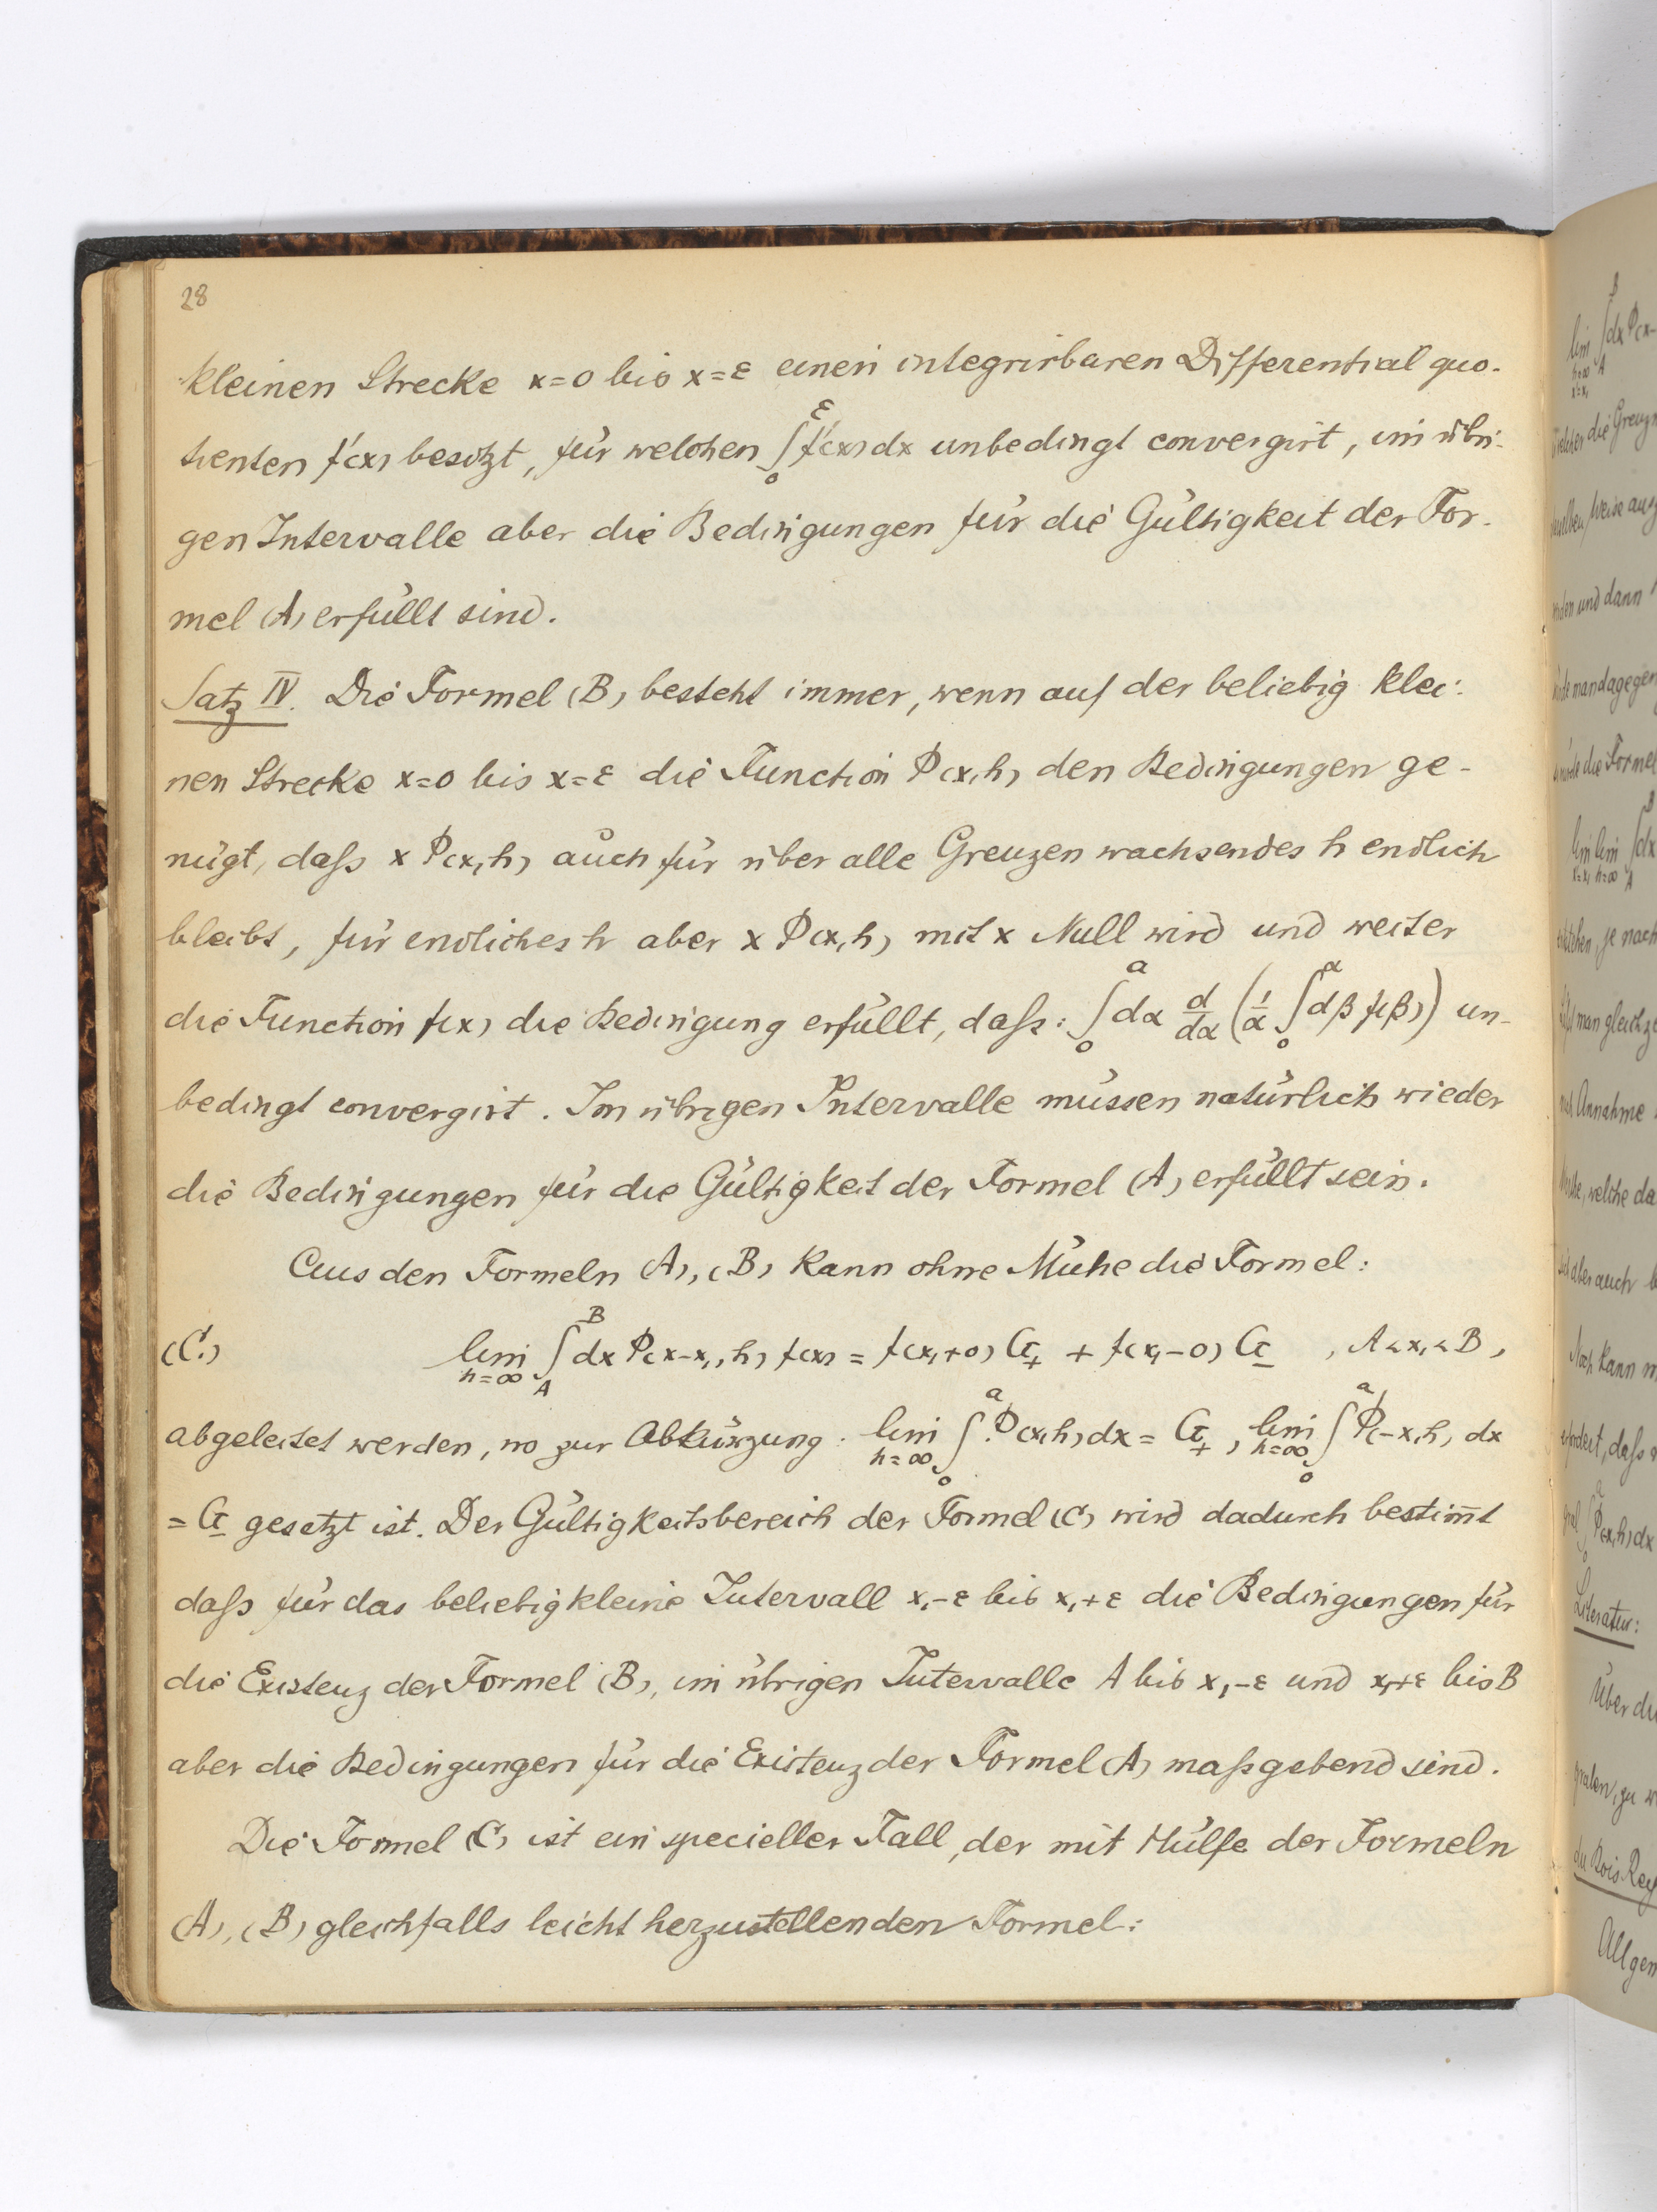 28
kleinen Strecke x=0 bis x=ε einen integrirbaren Differentialquo-
tienten f'(x) besitzt, für welchen ∫₀^ε f'(x) dx unbedingt convergirt, im übri-
gen Intervalle aber die Bedingungen für die Gültigkeit der For-
mel (A) erfüllt sind.
Satz IV. Die Formel (B) besteht immer, wenn auf der beliebig klei-
nen Strecke x=0 bis x=ε die Function Φ(x,h) den Bedingungen ge-
nügt, daß x Φ(x,h) auch für über alle Grenzen wachsendes h endlich
bleibt, für endliches h aber x Φ(x,h) mit x Null wird und weiter
die Function f(x) die Bedingung erfüllt, daß: ∫₀^a dα d/dα (1/α ∫₀^α dβ f(β)) un-
bedingt convergirt. Im übrigen Intervalle müssen natürlich wieder
die Bedingungen für die Gültigkeit der Formel (A) erfüllt sein.
Aus den Formeln (A), (B) kann ohne Mühe die Formel:
(C.) lim_{h=∞} ∫_A^B dx Φ(x-x₁,h) f(x) = f(x₁+0) G₊ + f(x₁-0) G₋ , A<x₁<B,
abgeleitet werden, wo zur Abkürzung: lim_{h=∞} ∫₀^a Φ(x,h) dx = G₊, lim_{h=∞} ∫₀^a Φ(-x,h) dx
= G₋ gesetzt ist. Der Gültigkeitsbereich der Formel (C) wird dadurch bestim̅t
daß für das beliebig kleine Intervall x₁-ε bis x₁+ε die Bedingungen für
die Existenz der Formel (B), im übrigen Intervalle A bis x₁-ε und x₁+ε bis B
aber die Bedingungen für die Existenz der Formel (A) maßgebend sind.
Die Formel (C) ist ein specieller Fall, der mit Hülfe der Formeln
(A), (B) gleichfalls leicht herzustellenden Formel: